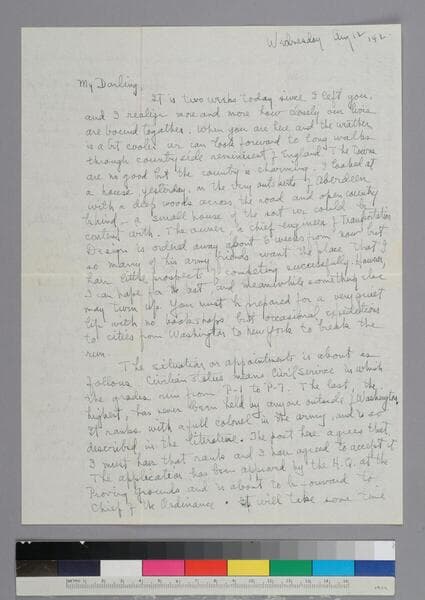 Wednesday Aug 12 192
My Darling
It is two weeks today since I left you,
and I realize more and more how closely our lives
are bound together. When you are here and the weather
is a bit cooler we can look forward to long walks
through country side reminiscent of England. The towns
are no good but the country is charming. I looked at
a house yesterday, on the very outskirts of Aberdeen
with a deep woods across the road and open country
behind – a small house of the sort we could be
content with. The owner, a chief engineer of Transportation
Design is ordered away about 6 weeks from now but
so many of his army friends want the place that I
have little prospect of competing successfully. However,
I can hope for the best and meanwhile something else
may turn up. You must be prepared for a very quiet
life with no bookshops but occasional expeditions
to cities from Washington to New York to break the
run.
The situation or appointments is about as
follows. Civilian status means Civil Service in which
the grades run from P-1 to P-7. The last, the
highest, has never been held by anyone outside of Washington.
It ranks with a full colonel in the army, and is so
described in the literature. The post here agrees that
I must have that rank and I have agreed to accept it.
The application has been approved by the H.Q. at the
Proving Grounds and is about to be forward to
Chief of the Ordinance. It will take some time